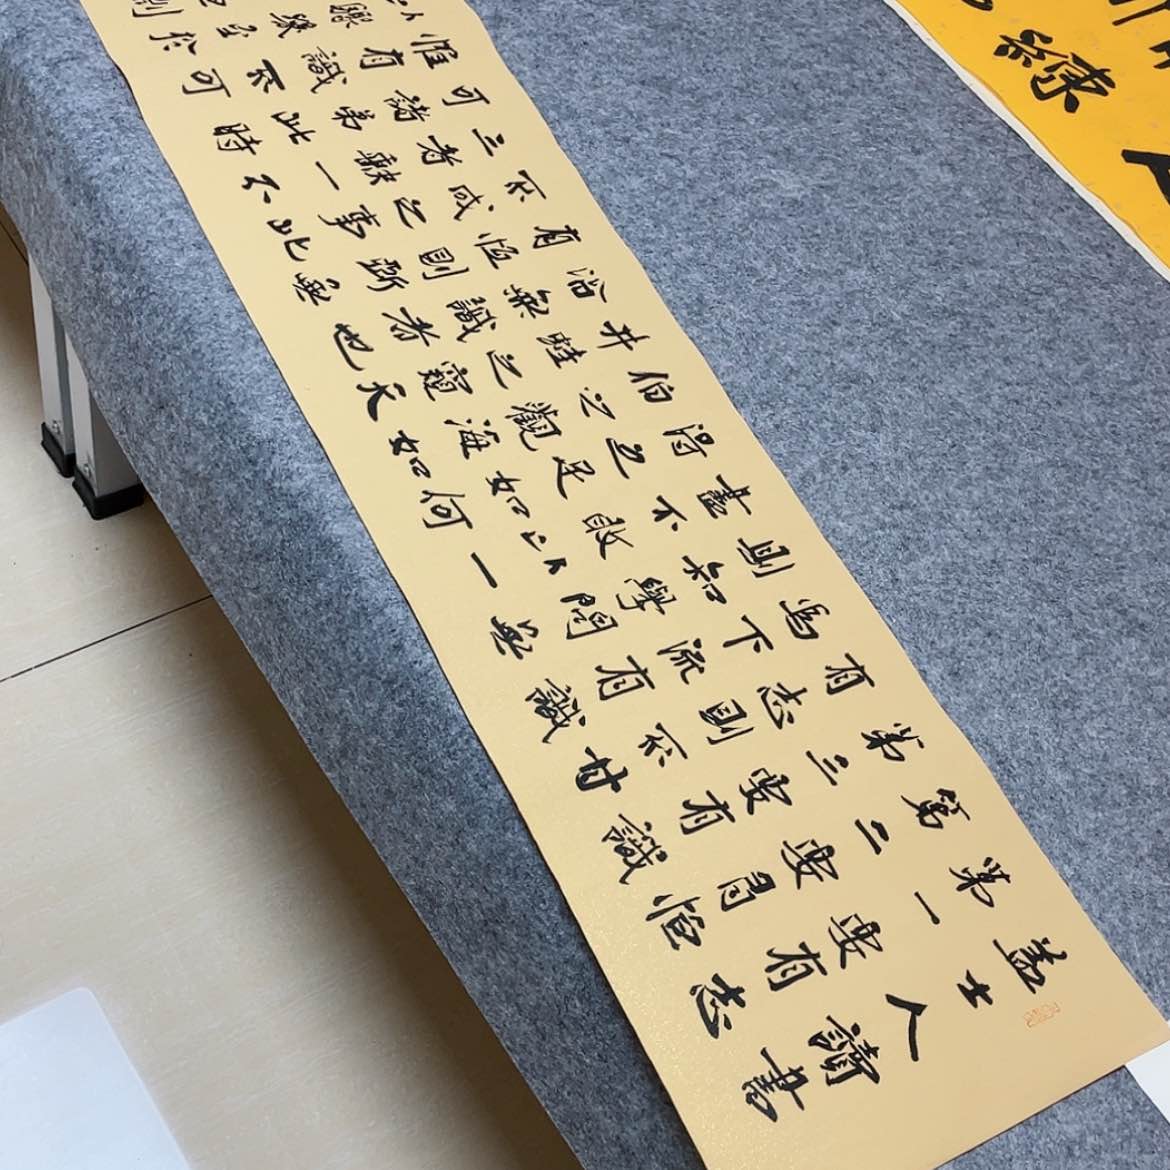 蓋士人讀書
第一要有志
第二要有恒
第三要有識
有志則不甘
為下流有識
則知學問無
盡不敢以一
得自足如河
伯之觀海如
井蛙之窺天
皆無識者也
有恒則斷無
不成之事此
三者缺一不
可諸弟此時
惟有識不可
以驟幾至於
則